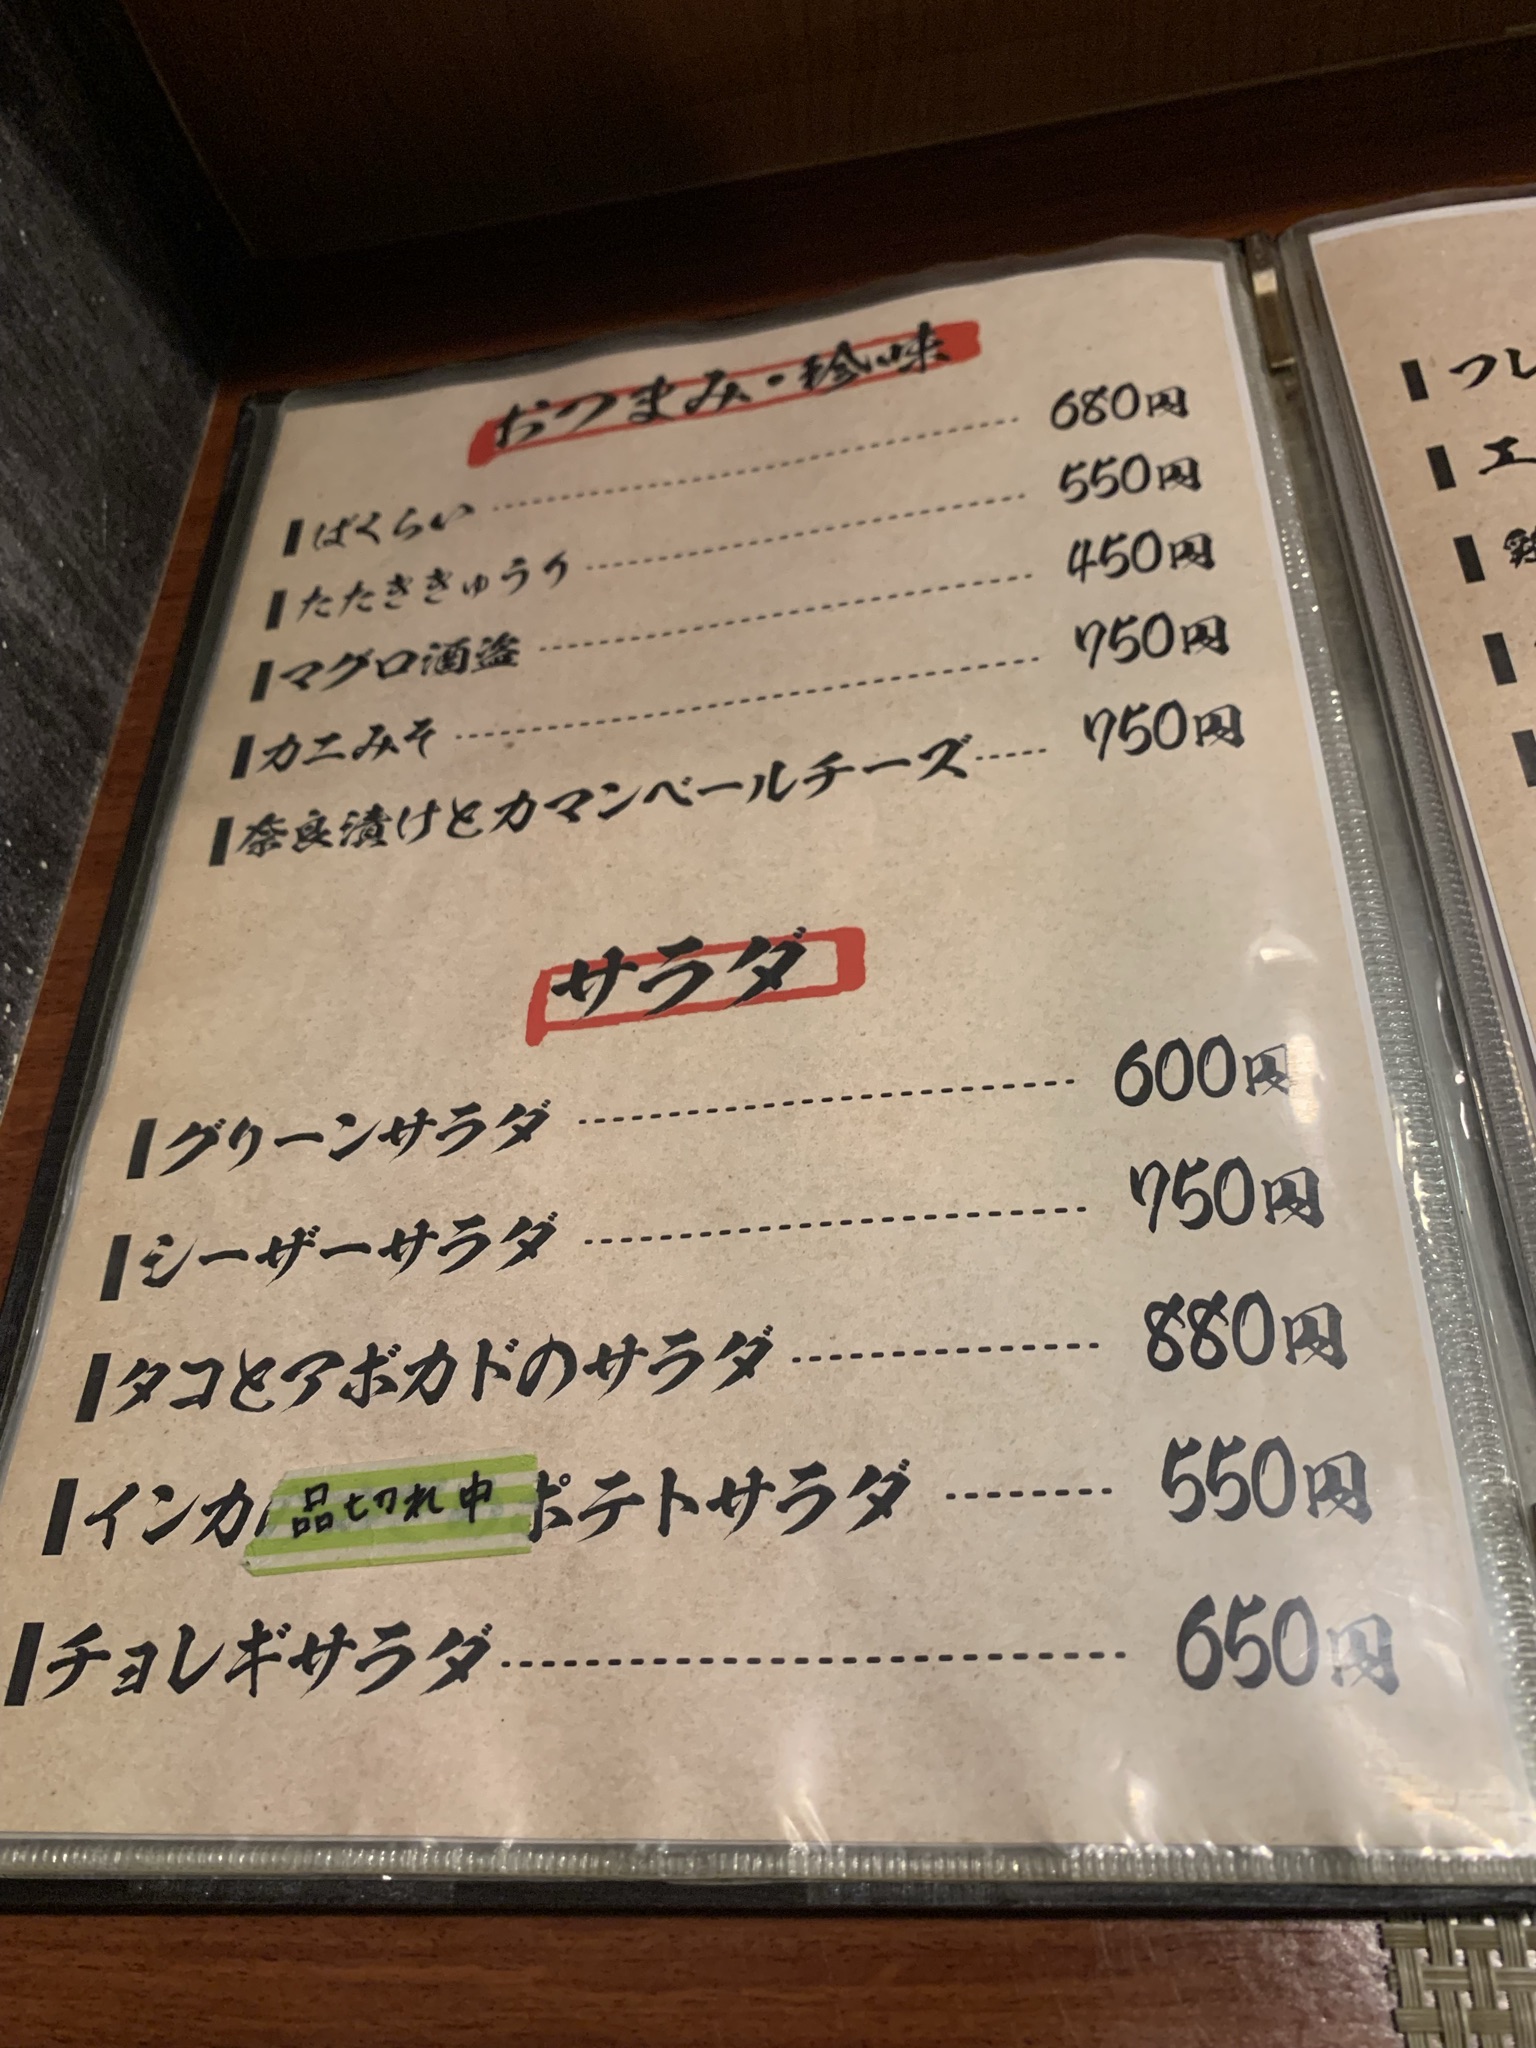 おつまみ・珍味
ばくらい 680円
たたききゅうり 550円
マグロ酒盗 450円
カニみそ 750円
奈良漬けとカマンベールチーズ 750円
サラダ
グリーンサラダ 600円
シーザーサラダ 750円
タコとアボカドのサラダ 880円
インカ 品切れ中 ポテトサラダ 550円
チョレギサラダ 650円
フレ
エ